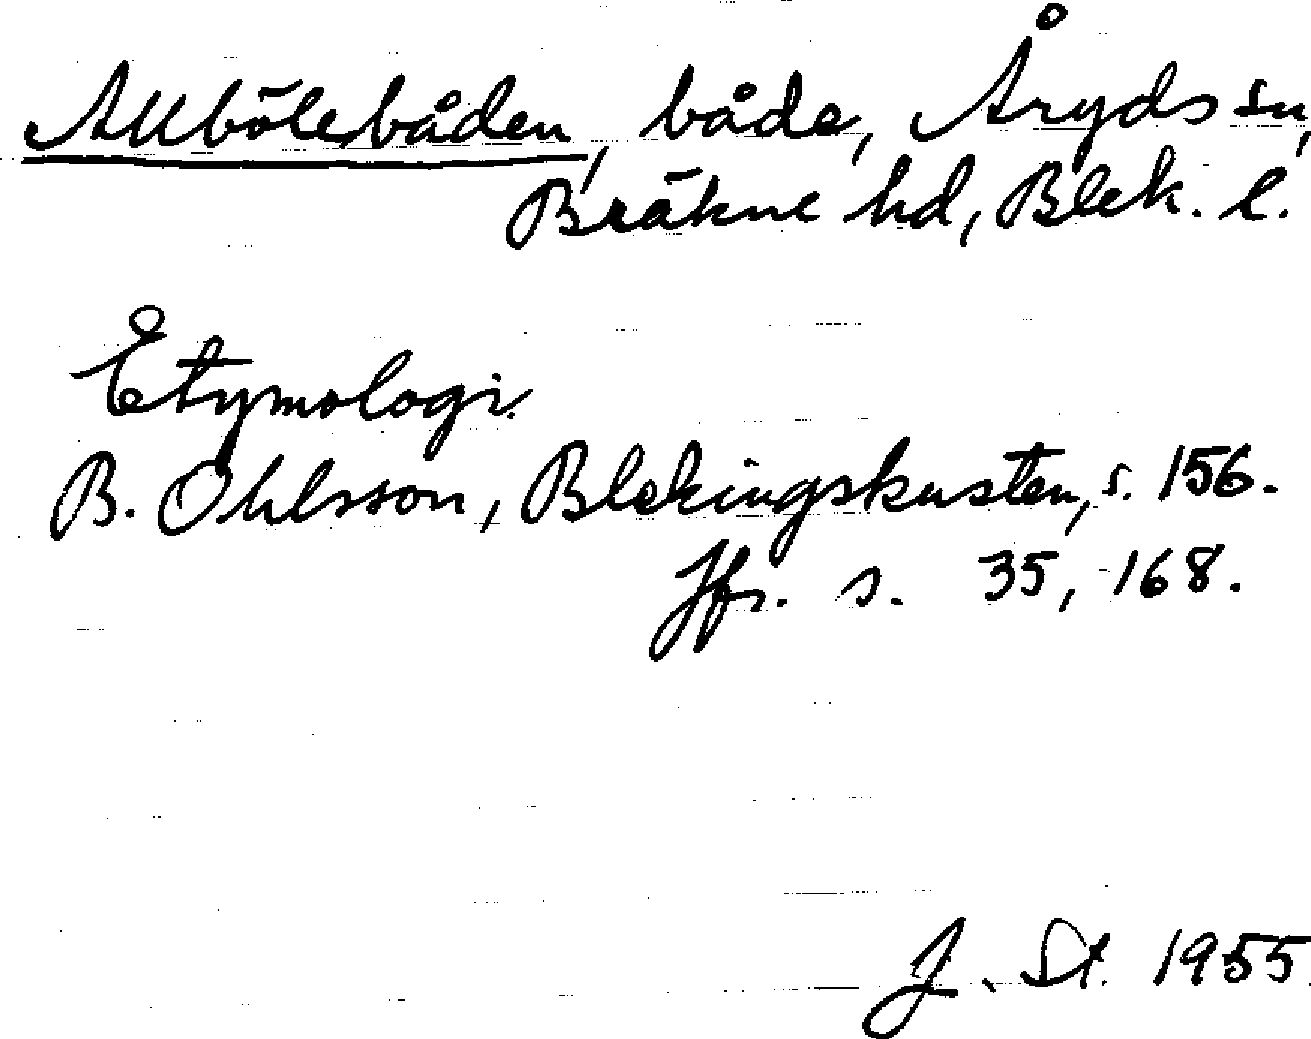 Allbölebåden, både, Åryds sn,
Bräkne hd, Blek. l.
Etymologi.
B. Ohlsson, Blekingskusten, s. 156.
Jfr. s. 35, 168.
J. St. 1955.